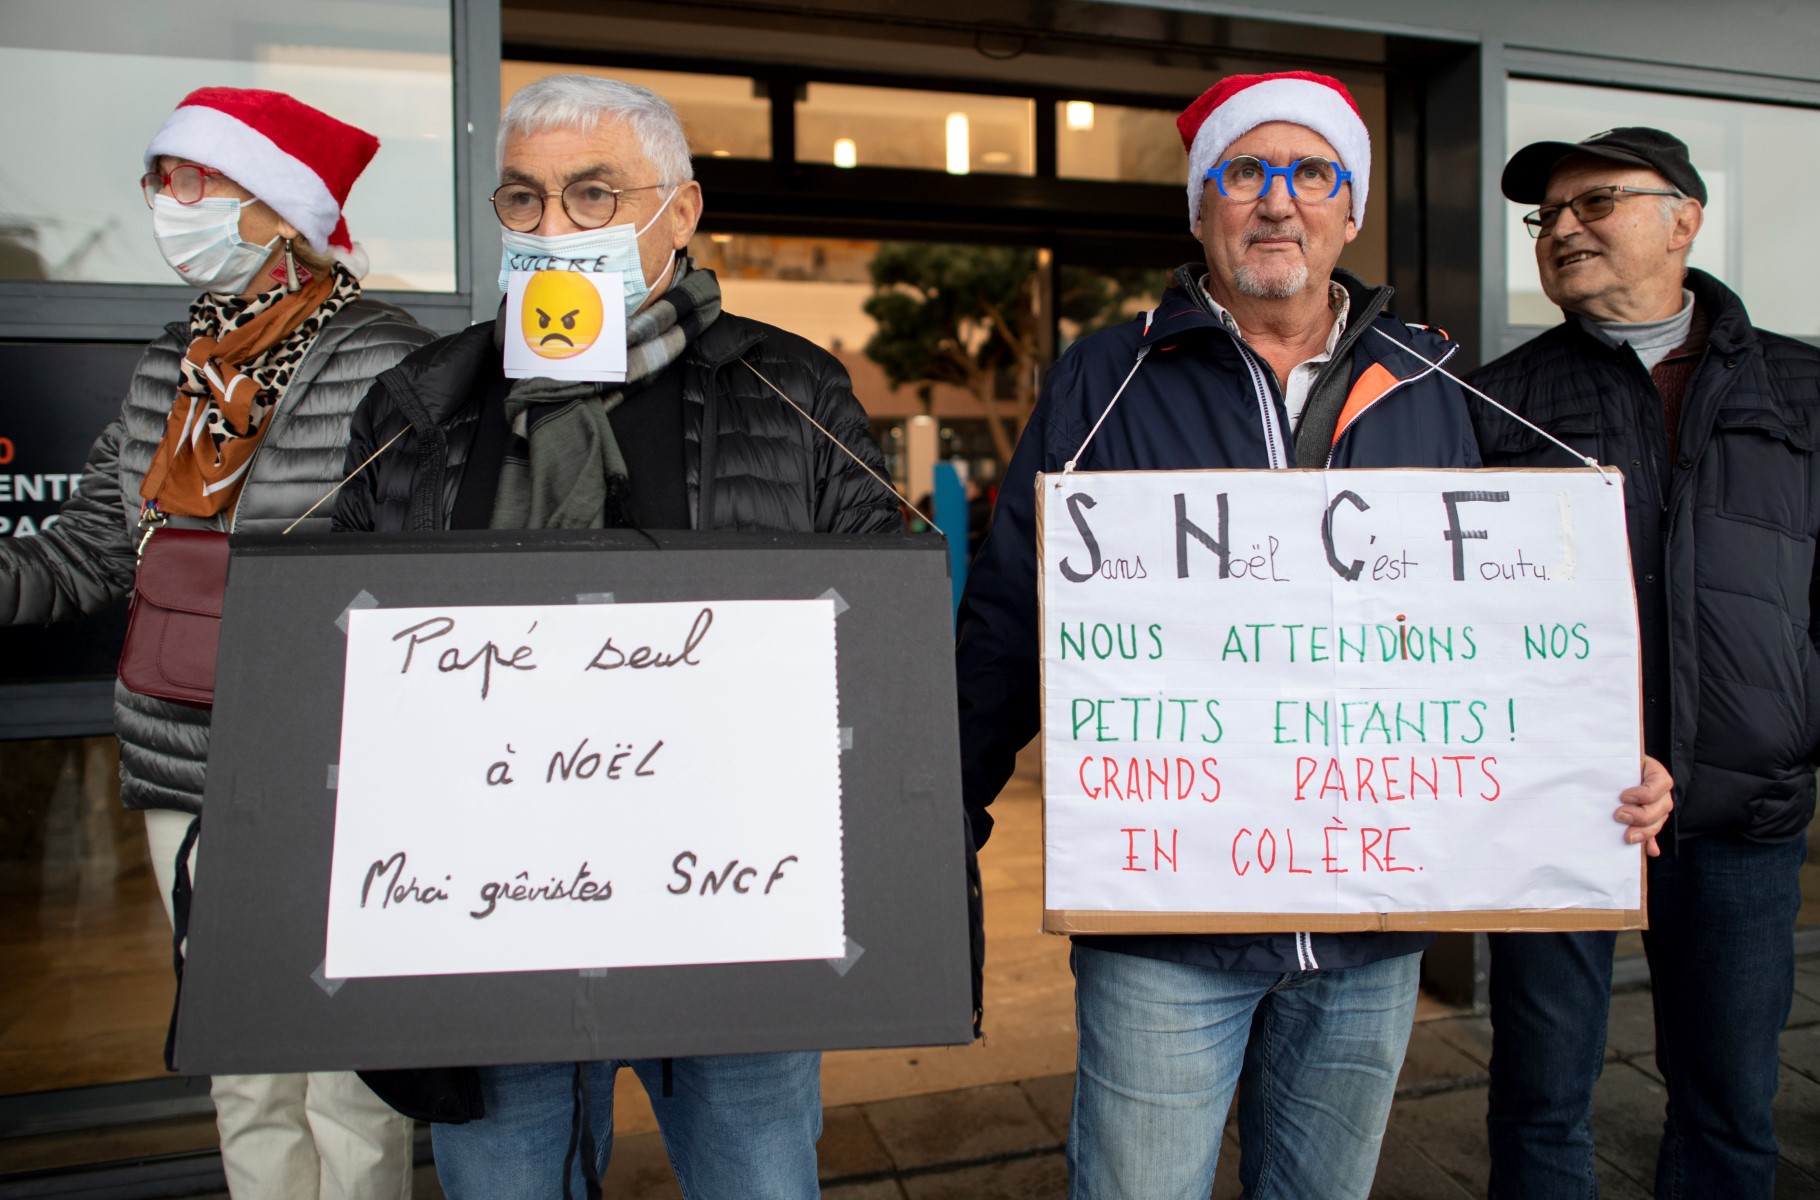 COLERE
Papé seul
à NOËL
Merci grêvistes SNCF
Sans Noël C'est Foutu.
NOUS ATTENDiONS NOS
PETITS ENFANTS !
GRANDS PARENTS
EN COLÈRE.